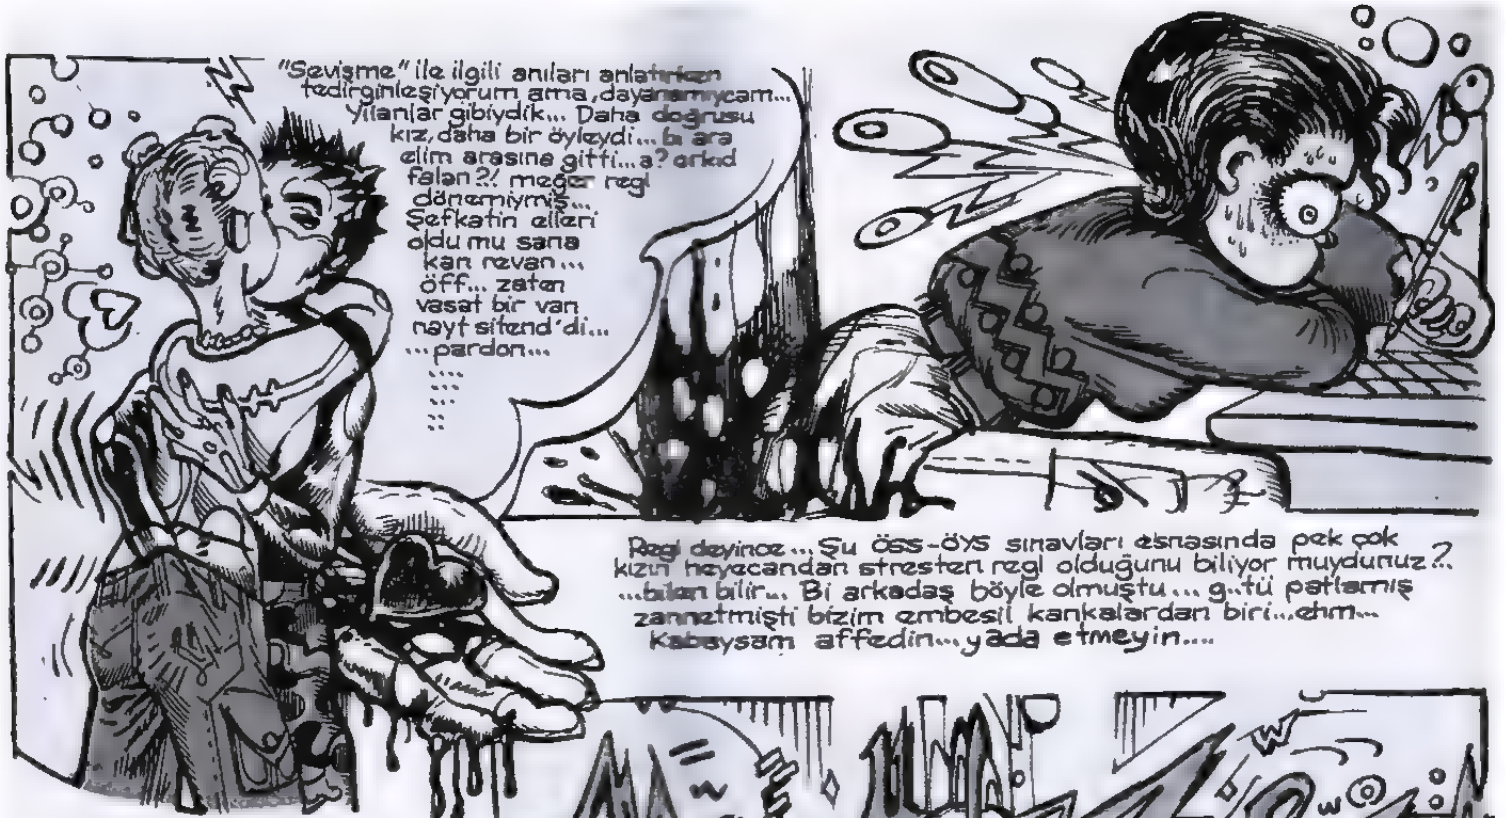 "Sevişme" ile ilgili anıları anlatırken
tedirginleşiyorum ama, dayanamıycam...
Yılanlar gibiydik... Daha doğrusu
kız, daha bir öyleydi... bi ara
elim arasına gitti...a? orkid
falan?! meğer regl
dönemiymiş...
Şefkatin elleri
oldu mu sana
kan revan...
öff... zaten
vasat bir van
nayt sitend'di...
...pardon...
Regl deyince... Şu öss-öys sınavları esnasında pek çok
kızın heyecandan stresten regl olduğunu biliyor muydunuz?..
...bilen bilir... Bi arkadaş böyle olmuştu... g..tü patlamış
zannetmişti bizim embesil kankalardan biri...ehm...
Kabaysam affedin...yada etmeyin....